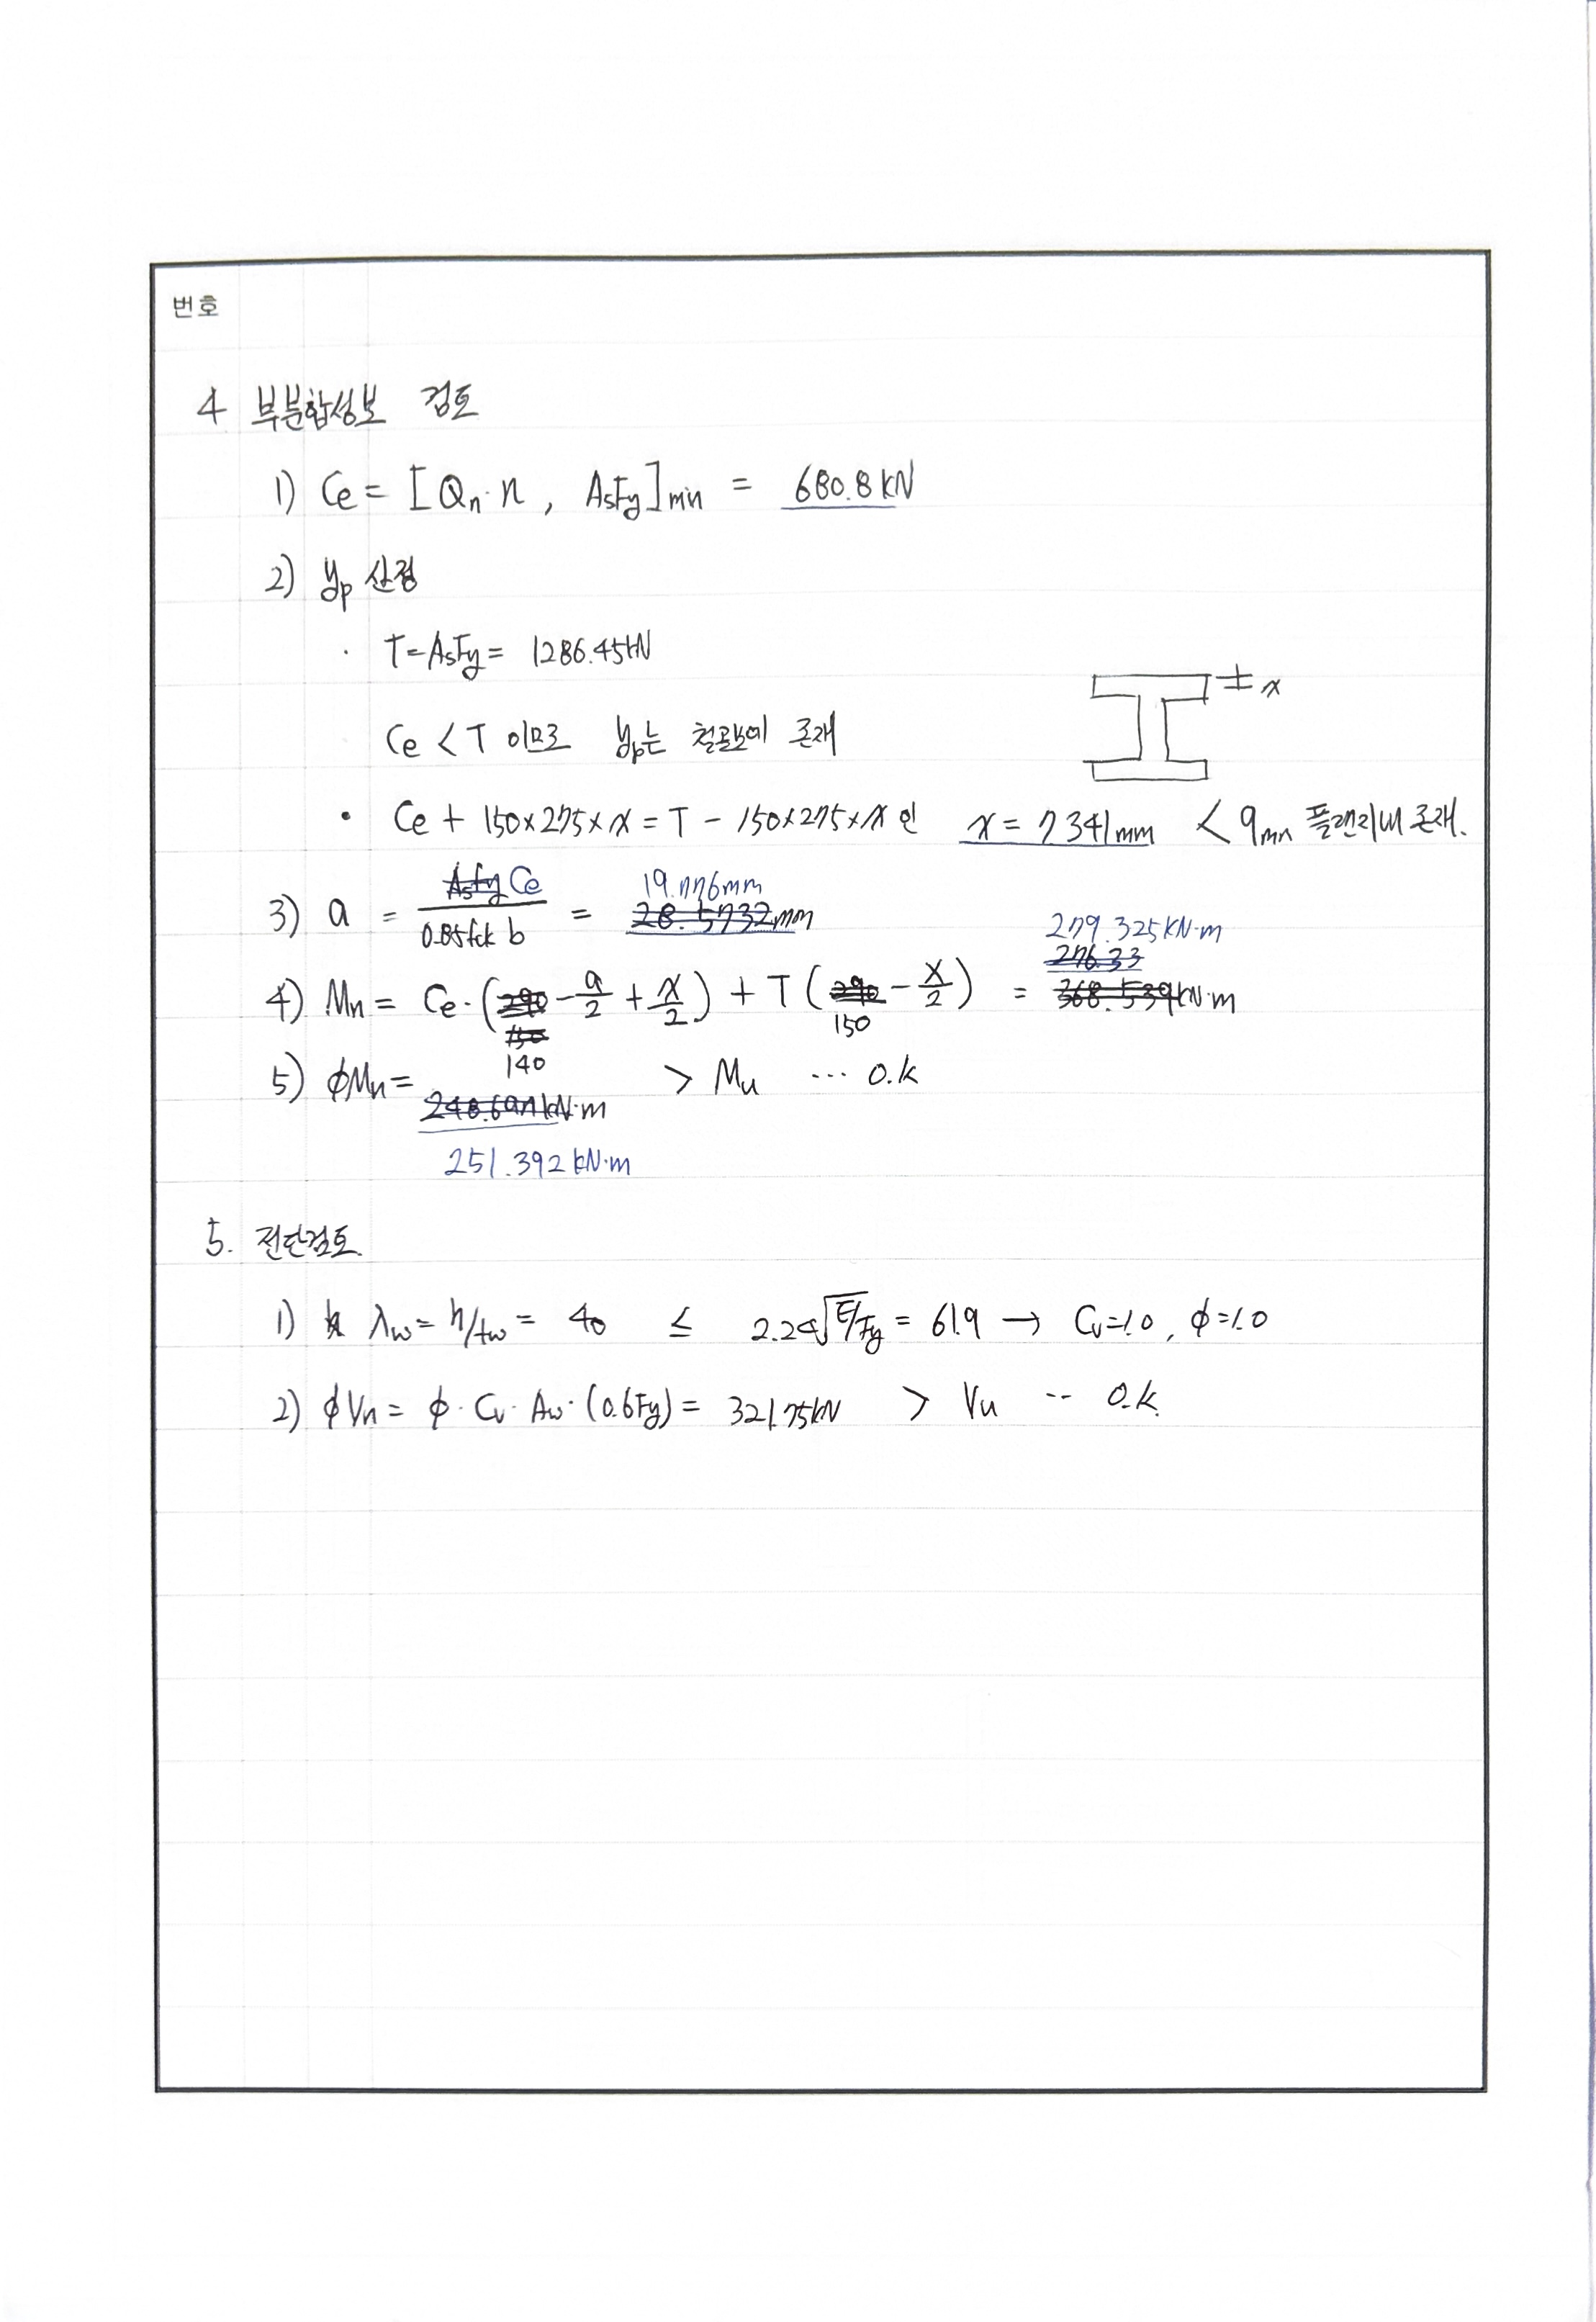 번호
4 부분합성보 검토
1) Ce = [Qn·n , AsFy]min = 680.8 kN
2) yp 산정
· T=AsFy = 1286.45kN
Ce < T 이므로 yp는 철골보에 존재
x
· Ce + 150×275×x = T - 150×275×x 인 x = 7.341mm < 9mm 플랜지내 존재.
3) a = AsFy Ce / 0.85fck b = 19.776mm 28.5732mm
4) Mn = Ce·(290 150 140 - a/2 + x/2) + T(290 150 - x/2) = 279.325 kN·m 276.33 368.539kN·m
5) φMn = 248.697kN·m 251.392 kN·m > Mu ··· O.K
5. 전단검토.
1) λw = h/tw = 40 ≤ 2.24√E/Fy = 61.9 → Cv=1.0, φ=1.0
2) φVn = φ·Cv·Aw·(0.6Fy) = 321.75kN > Vu ·· O.K.